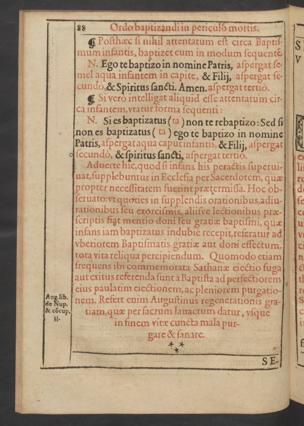 88 Ordo baptizandi in periculo mortis.
¶ Posthæc si nihil attentatum est circa Baptis-
mum infantis, baptizet eum in modum sequentē.
N. Ego te baptizo in nomine Patris, aspergat se-
mel aqua infantem in capite, & Filij, aspergat se-
cundò, & Spiritus sancti. Amen. aspergat tertiò.
¶ Si verò intelligat aliquid esse attentatum cir-
ca infantem, vtatur forma sequenti:
N. Si es baptizatus (ta) non te rebaptizo: Sed si
non es baptizatus (ta) ego te baptizo in nomine
Patris, aspergat aqua caput infantis, & Filij, aspergat
secundò, & spiritus sancti, aspergat tertiò.
Aduerte hic, quod si infans his peractis superui-
uat, supplebuntur in Ecclesia per Sacerdotem, quæ
propter necessitatem fuerint prætermissa. Hoc ob-
seruato: vt quoties in supplendis orationibus, adiu-
rationibus seu exorcismis, alijsve lectionibus præ-
scriptis fiat mentio doni seu gratiæ baptismi, quā
infans iam baptizatus indubiè recepit, referatur ad
vberiorem Baptismatis gratiæ aut doni effectum,
tota vita reliqua percipiendum. Quomodo etiam
frequens ibi commemorata Sathanæ eiectio fuga
aut exitus referenda sunt à Baptista ad perfectiorem
eius paulatim eiectionem, ac pleniorem purgatio-
nem. Refert enim Augustinus regenerationis gra-
tiam, quæ per sacrum lauacrum datur, vsque
in finem vitæ cuncta mala pur-
gare & sanare.
Aug. lib.
de Nup.
& cōcup.
SE-